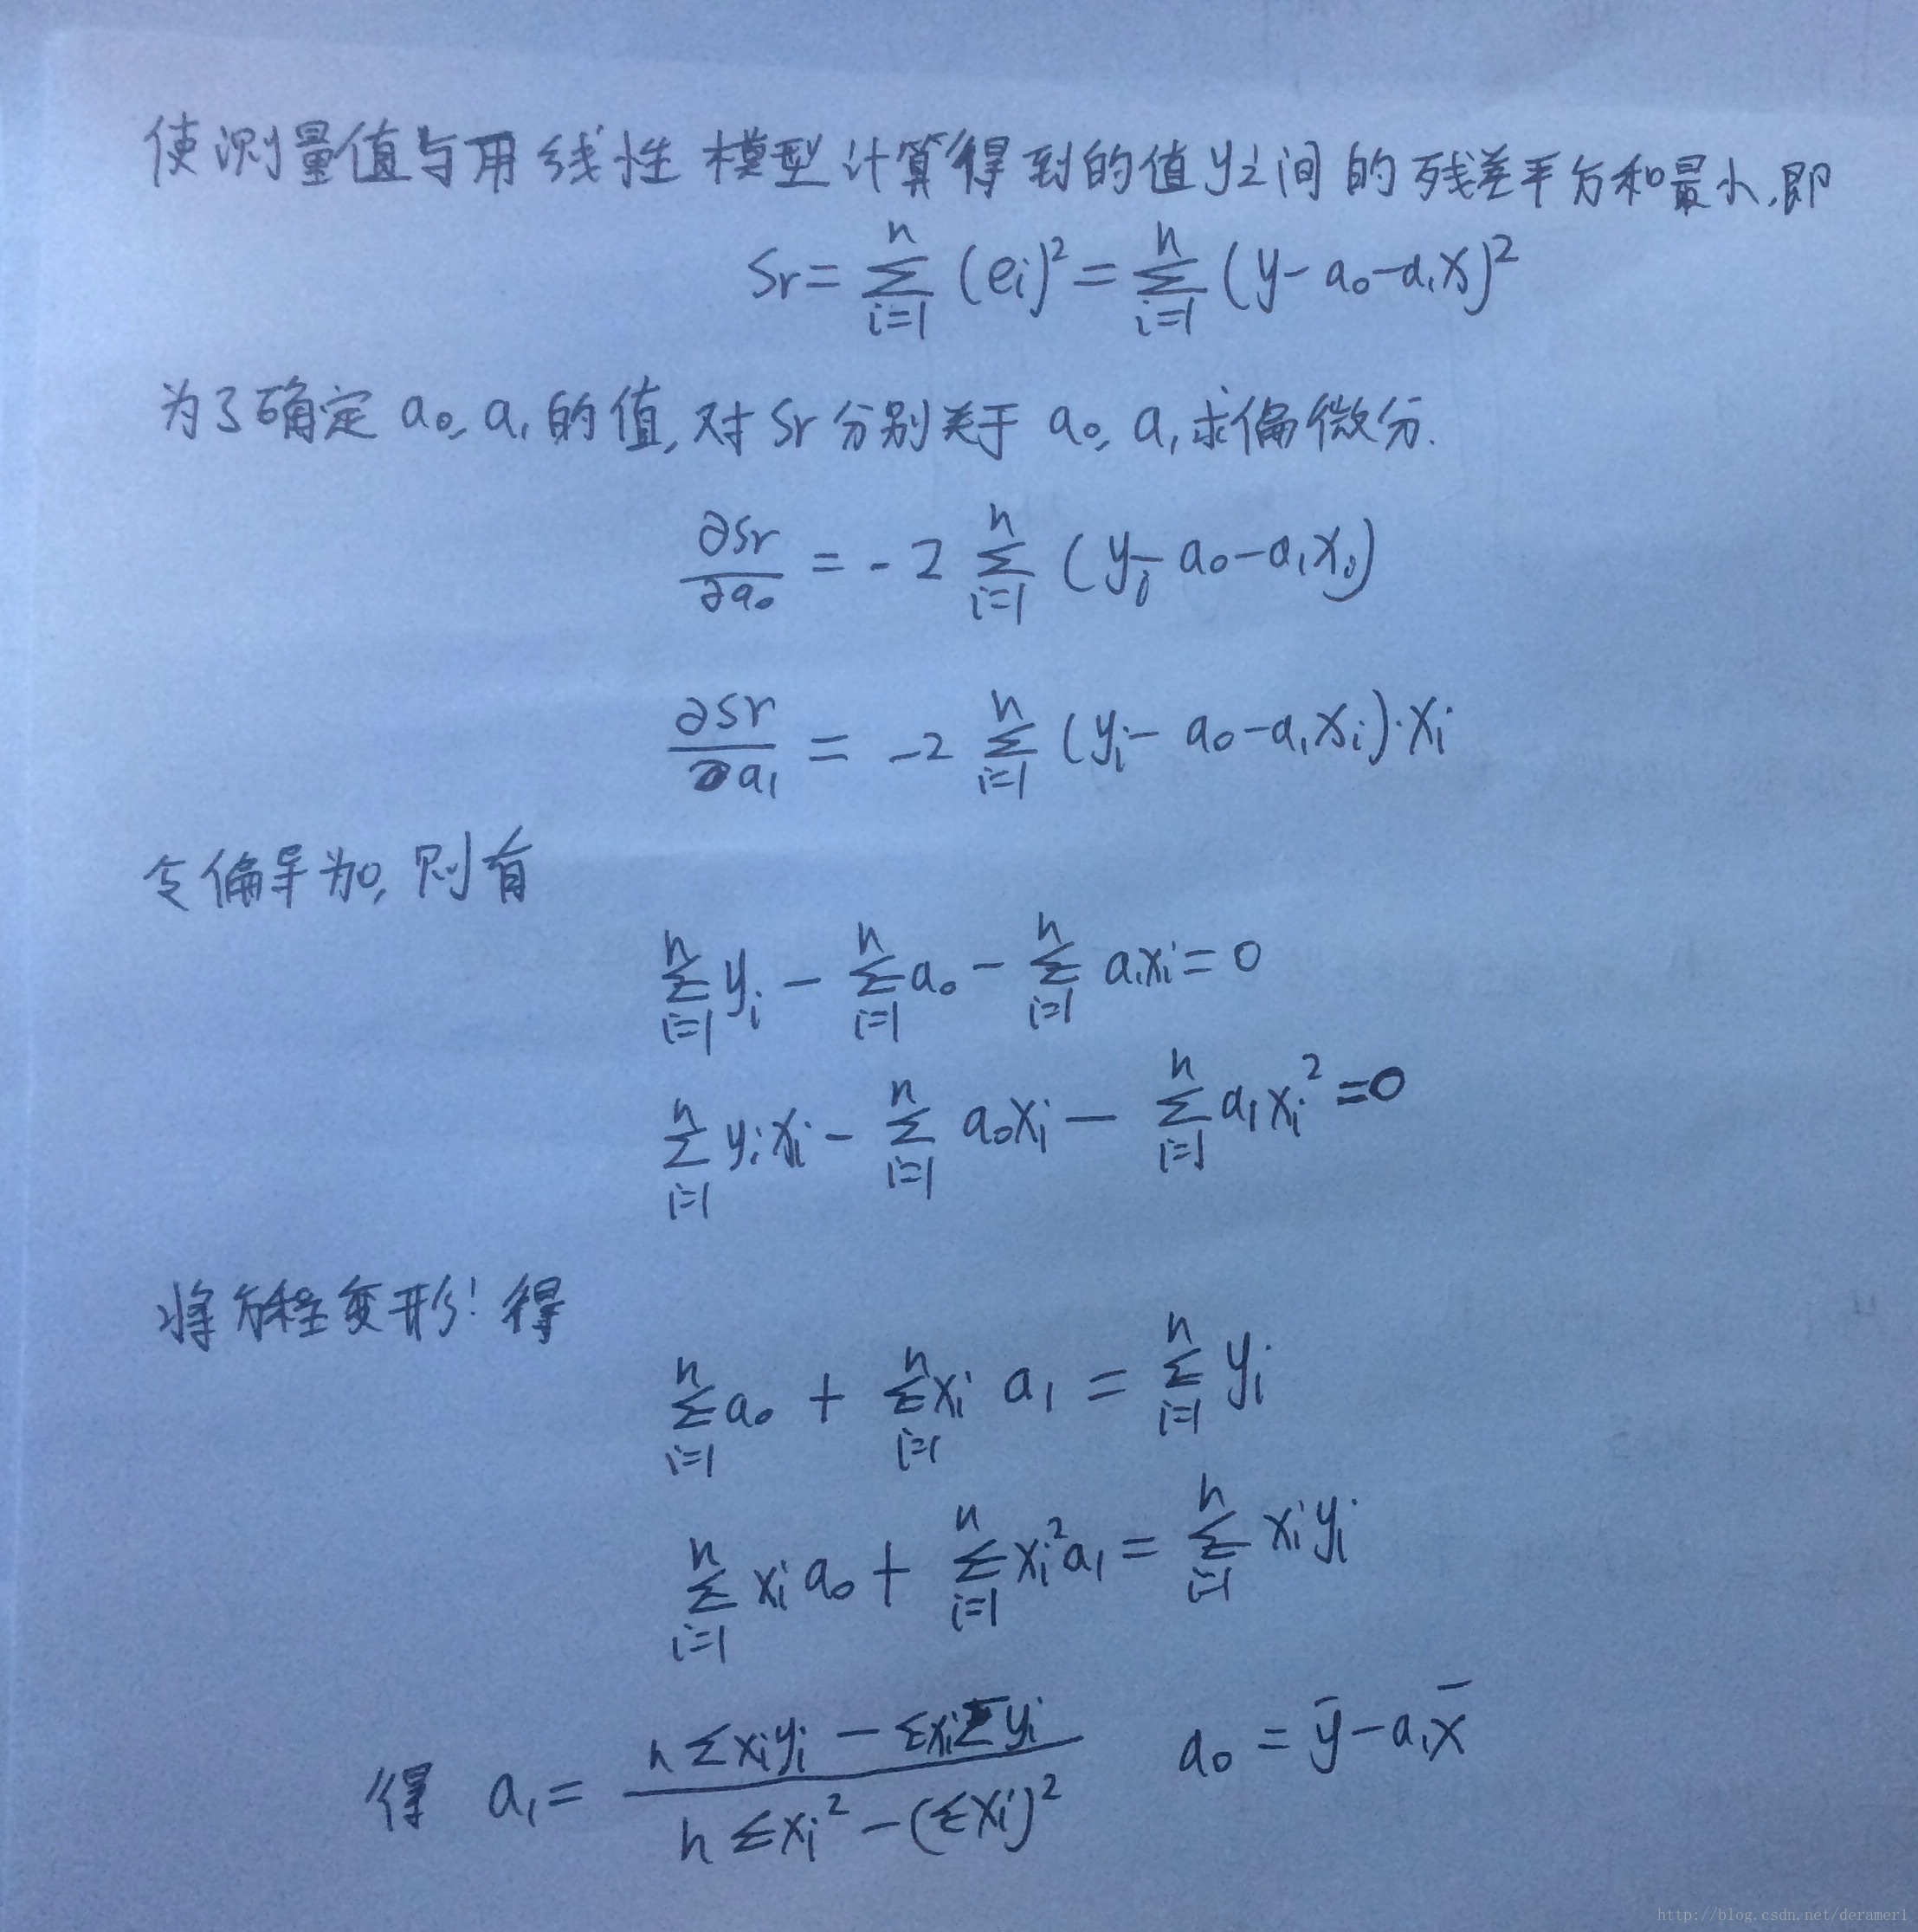 使测量值与用线性模型计算得到的值y之间的残差平方和最小,即
Sr = ∑_{i=1}^{n} (ei)² = ∑_{i=1}^{n} (y - a₀ - a₁x)²
为了确定 a₀, a₁ 的值, 对 Sr 分别关于 a₀, a₁ 求偏微分.
∂Sr/∂a₀ = -2 ∑_{i=1}^{n} (yᵢ - a₀ - a₁xᵢ)
∂Sr/∂a₁ = -2 ∑_{i=1}^{n} (yᵢ - a₀ - a₁xᵢ)·xᵢ
令偏导为0, 则有
∑_{i=1}^{n} yᵢ - ∑_{i=1}^{n} a₀ - ∑_{i=1}^{n} a₁xᵢ = 0
∑_{i=1}^{n} yᵢxᵢ - ∑_{i=1}^{n} a₀xᵢ - ∑_{i=1}^{n} a₁xᵢ² = 0
将方程变形: 得
∑_{i=1}^{n} a₀ + ∑_{i=1}^{n} xᵢ a₁ = ∑_{i=1}^{n} yᵢ
∑_{i=1}^{n} xᵢ a₀ + ∑_{i=1}^{n} xᵢ² a₁ = ∑_{i=1}^{n} xᵢyᵢ
得 a₁ = (n∑xᵢyᵢ - ∑xᵢ∑yᵢ) / (n∑xᵢ² - (∑xᵢ)²) a₀ = ȳ - a₁x̄
http://blog.csdn.net/deramer1